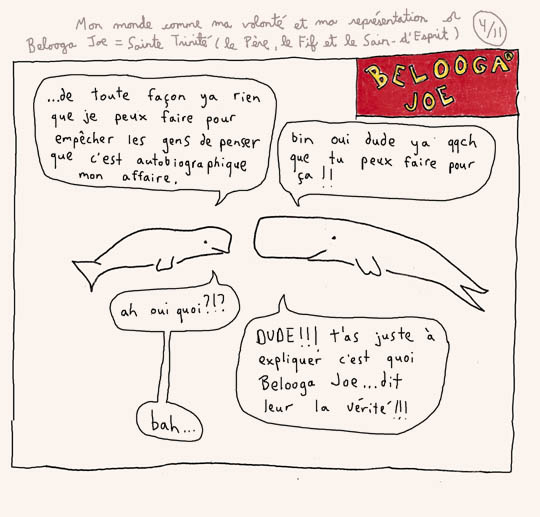 Mon monde comme ma volonté et ma représentation or
Belooga Joe = Sainte Trinité (le Père, le Fif et le Sain-d'Esprit)
4/11
BELOOGA
JOE
...de toute façon ya rien
que je peux faire pour
empêcher les gens de penser
que c'est autobiographique
mon affaire.
bin oui dude ya qqch
que tu peux faire pour
ça !!
ah oui quoi?!?
DUDE!!! t'as juste à
expliquer c'est quoi
Belooga Joe...dit
leur la vérité!!!
bah...